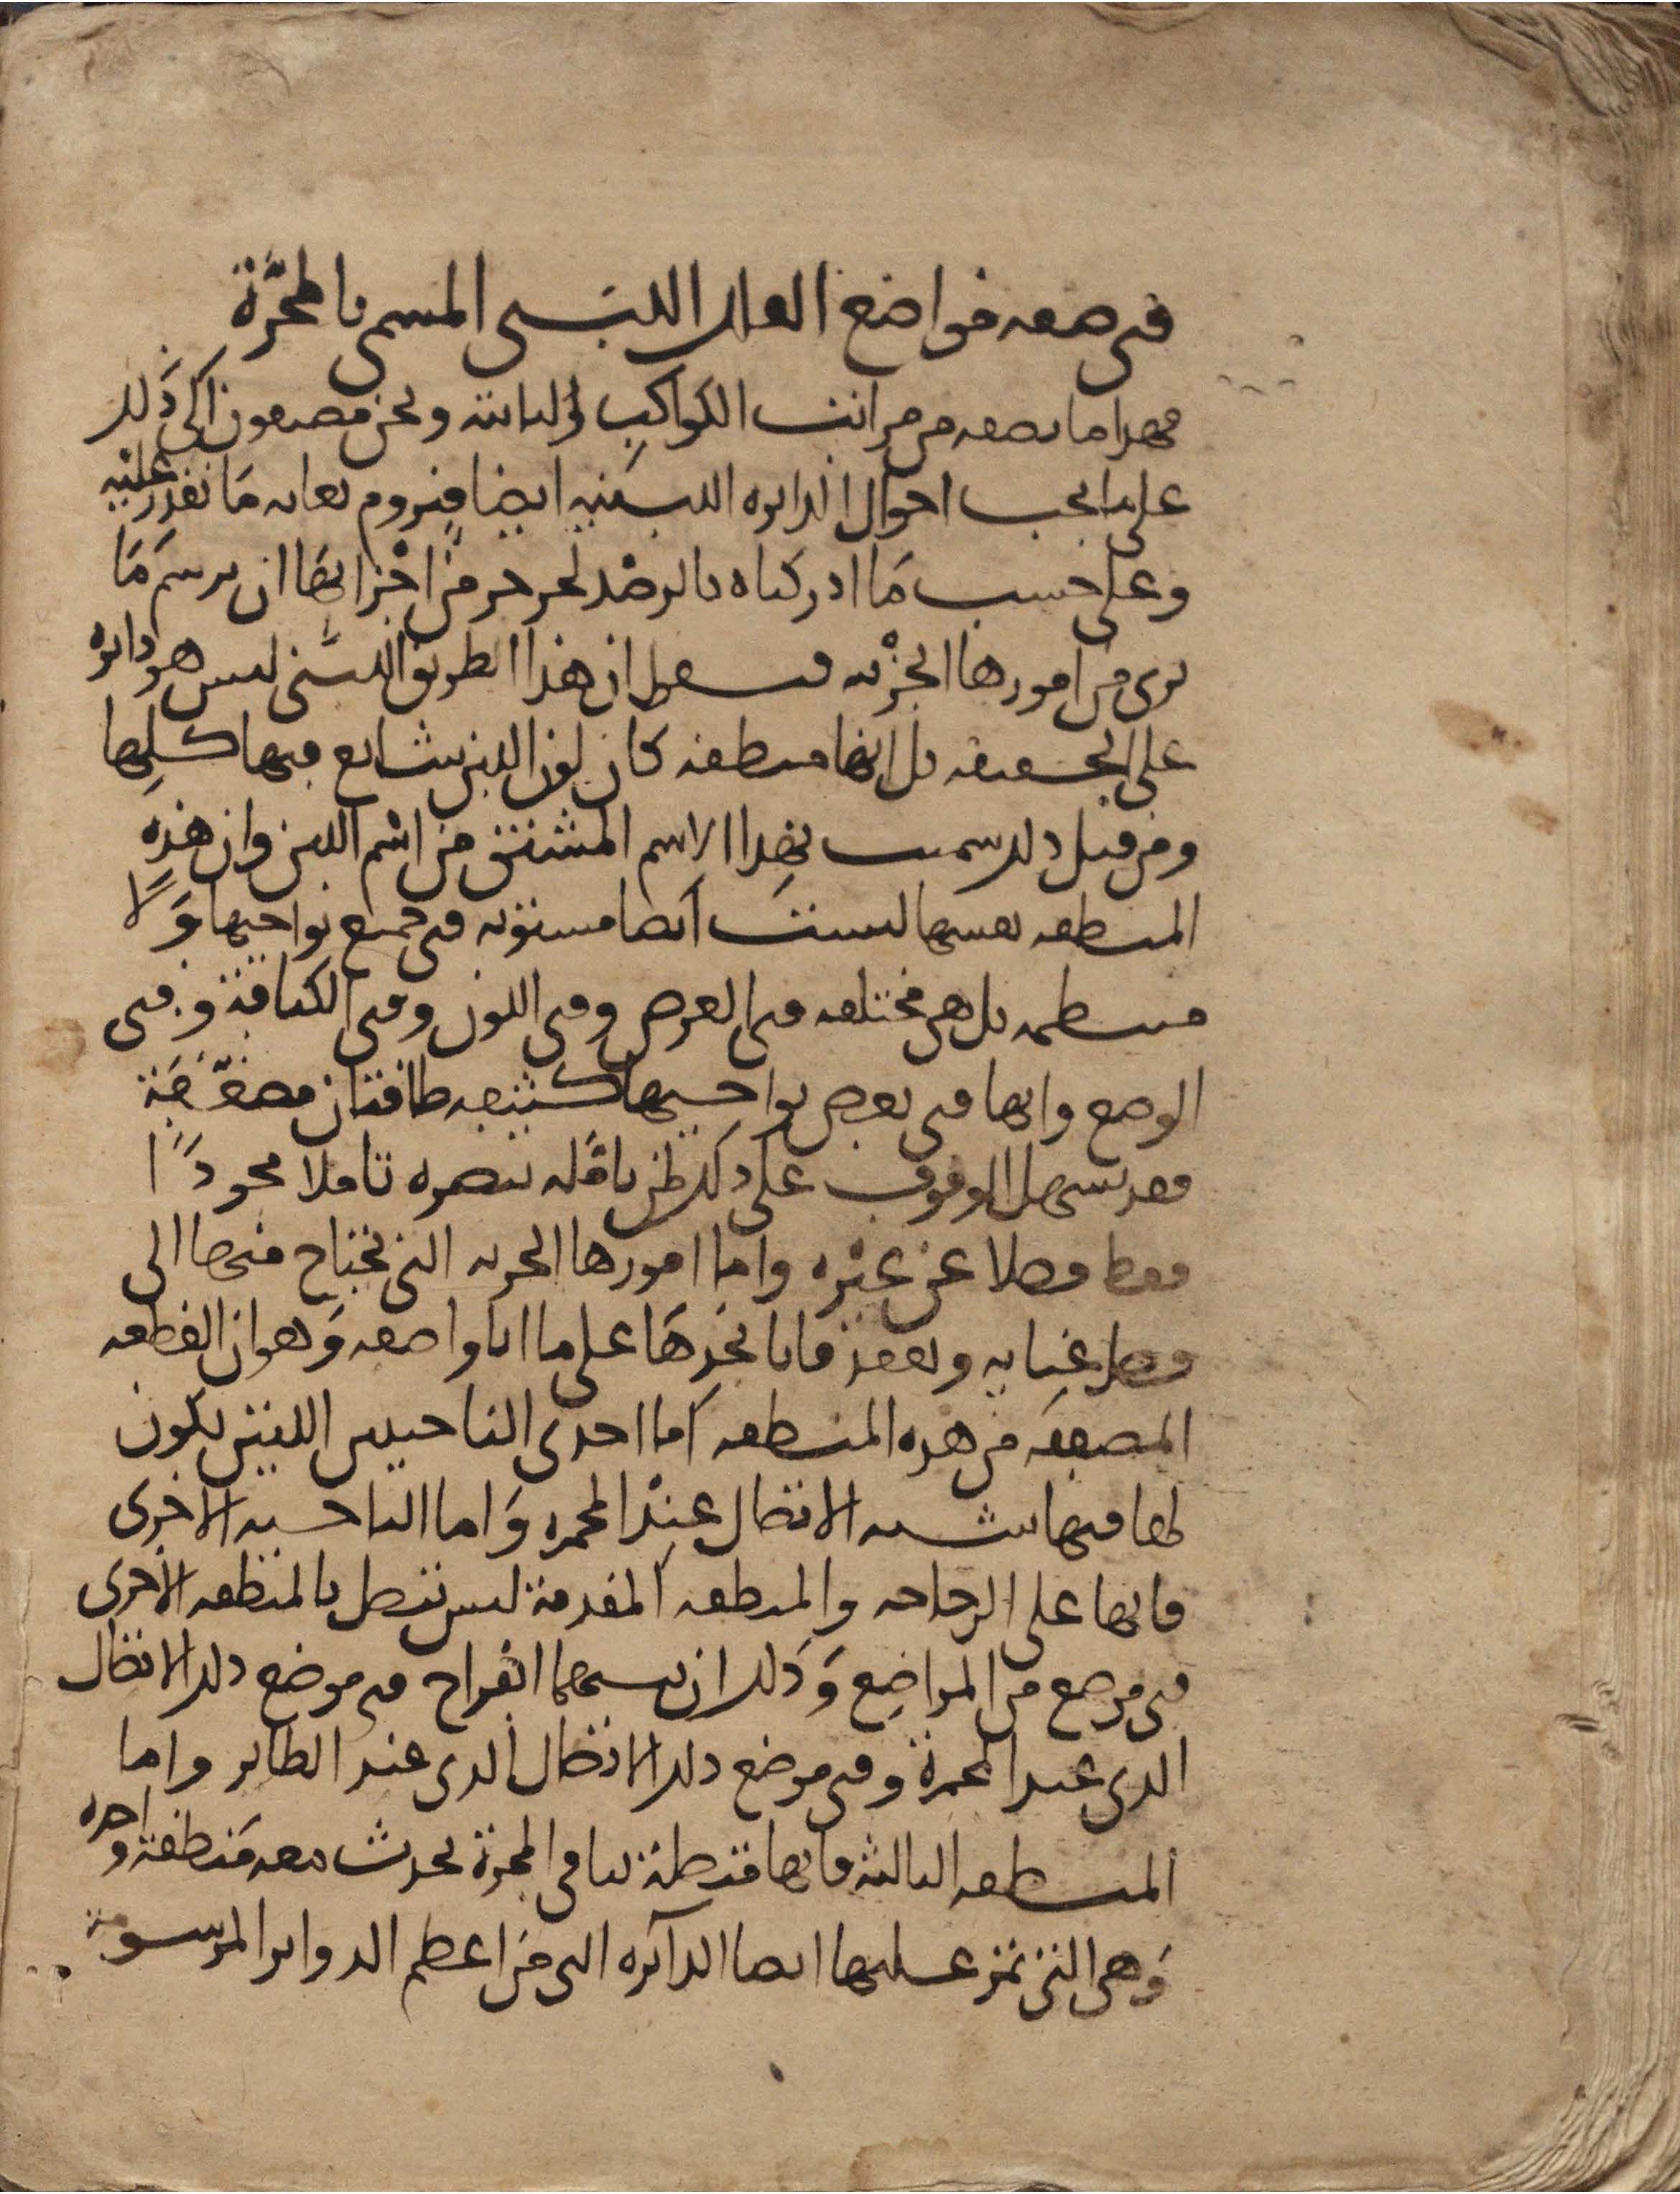 في صفه مواضع الفلك اللبني المسمى بالمجرّة
فهذا ما نصفه من مراتب الكواكب الثابته ونحن مضيفون الى ذَلك
على ما يجب احوال الدايره اللبنيه ايضا فنروم بغايه مَا نقدر عليه
وعلى حسب مَا ادركناه بالرصد لجز جز من اجْزايهَا ان نرسم مَا
نرى من امورها الجزْيه فنقول ان هذا الطريق اللبني ليس هو دايره
على الحقيقه بل انها منطقه كان لون اللبن شايع فيها كلِها
ومن قبل ذلك سميت بهذا الاسم المشتق من اسْم اللبن وان هَذه
المنطقه نفسها ليست ايضا مستويه في جميع نواحيها وَلاً
منتظمه بل هي مختلفه في العرض وفي اللون وفي الكثافة وفي
الوضع وانها في بعض نواحيها كشبيه طاقتان مصفّقَة
فقد يسهل الوقوف على ذلك لمن تامّله ببصره تاملا مجودًا
فقط فضلا عن غيْره واما امورها الجزيه التي نحتاج فيها الى
فضل عنايه وتفقد فانا نجدهَا على ما انا واصفه وَهو ان القطعه
المصفقه من هذه المنطقه اما احدى الناحيتين اللتين يكون
لها فيها شبيه الاتصال عنْد المجمره وَاما الناحيه الاخرى
فانها على الدجاجه والمنطقه المقدمة ليس تتصل بالمنطقه الاخرى
في موضع من المواضع وَذلك ان بينهما انفراج في موضع ذلك الاتصال
الذي عند المجمرة وفي موضع ذلك الاتصال الذي عند الطاير واما
المنطقه التاليه فانها متصلة بباقي المجرة يحدث معه منطقة واحده
وَهي التي تمر عليها ايضا الدآيره التي من اعظم الدواير المرسومة